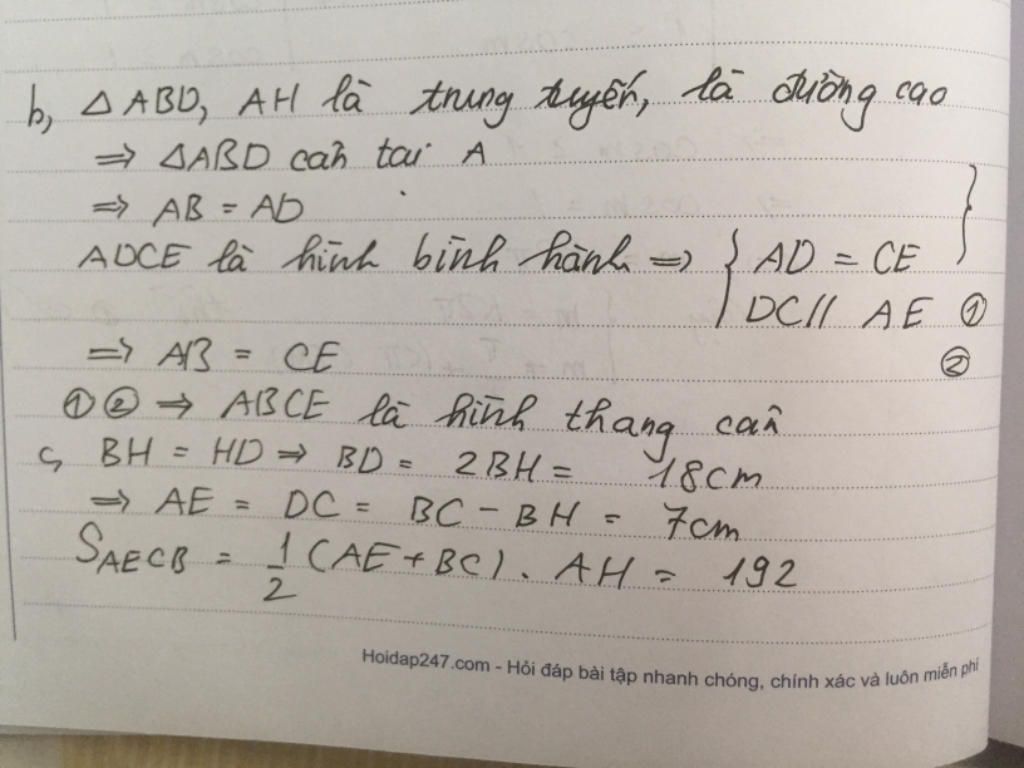 b, △ABD, AH là trung tuyến, là đường cao
⇒ △ABD cân tai A
⇒ AB = AD
ADCE là hình bình hành ⇒ { AD = CE }
DC // AE ①
⇒ AB = CE ②
① ② ⇒ ABCE là hình thang cân
c, BH = HD ⇒ BD = 2BH = 18cm
⇒ AE = DC = BC - BH = 7cm
S_AECB = 1/2 (AE + BC). AH = 192
Hoidap247.com - Hỏi đáp bài tập nhanh chóng, chính xác và luôn miễn phí